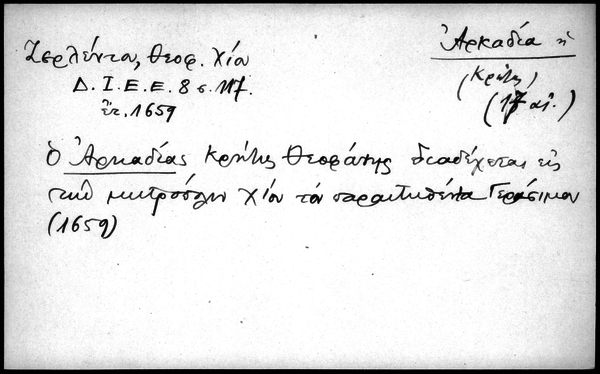 Ζερλέντου, Θεοφ. Χίου
Δ. Ι. Ε. Ε. 8 σ. 117.
ἔτ. 1659
Ἀρκαδία ἡ
(Κρήτης)
(17 αἰ.)
ὁ Ἀρκαδίας Κρήτης Θεοφάνης διαδέχεται εἰς
τὴν μητρόπολιν Χίου τὸν παραιτηθέντα Γεράσιμον
(1659)